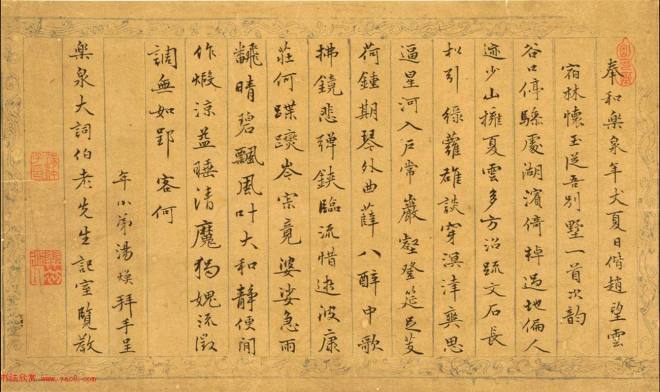 奉和樂泉年丈夏日偕趙望雲
宿林懷玉逆吾別墅一首次韵
谷口停驂處湖濱倚棹過地偏人
迹少山擁夏雲多方沼疏文石長
松引綠蘿雄談穿溟涬爽思
逼星河入戶常巖壑登筵足芰
荷鍾期琴外曲薛八醉中歌
拂鏡悲彈鋏臨流惜逝波康
莊何蹀躞岑寂竟婆娑急雨
飜晴碧飄風叶大和靜便閒
作煅涼益睡清魔猶媿流徵
調無如郢客何
年小弟湯煥拜手呈
樂泉大詞伯老先生記室覽教
书法欣赏 www.yac8.com